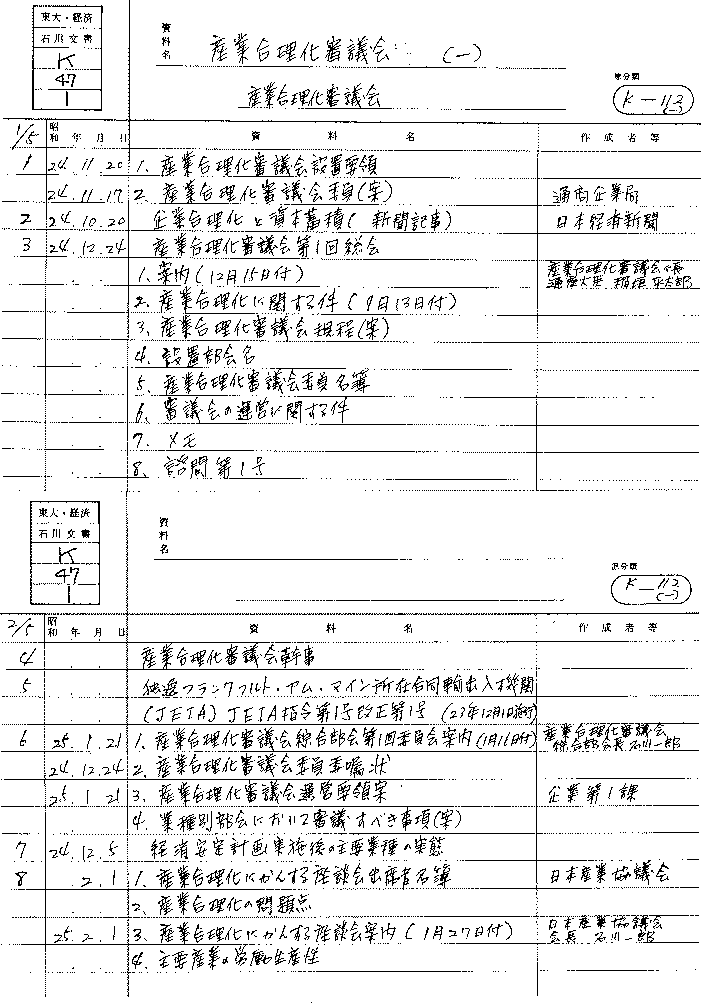 東大・経済
石川文書
K
47
1
資料名 産業合理化審議会 (一)
産業合理化審議会
原分類
K-113
(一)
1/5 昭和 年 月 日 資 料 名 作成者等
1 24.11.20 1. 産業合理化審議会設置要領
24.11.17 2. 産業合理化審議会委員(案) 通商企業局
2 24.10.20 企業合理化と資本蓄積( 新聞記事) 日本経済新聞
3 24.12.24 産業合理化審議会第1回総会
1. 案内(12月15日付) 産業合理化審議会会長
通産大臣 稲垣平太郎
2. 産業合理化に関する件(9月13日付)
3. 産業合理化審議会規程(案)
4. 設置部会名
5. 産業合理化審議会委員名簿
6. 審議会の運営に関する件
7. メモ
8. 諮問第1号
東大・経済
石川文書
K
47
1
資料名
原分類
K-113
(一)
2/5 昭和 年 月 日 資 料 名 作成者等
4 産業合理化審議会幹事
5 フランクフルト・アム・マイン所在合同輸出入機関
(JEIA) JEIA指令第1号改正第1号 (23年12月1日施行)
6 25.1.21 1. 産業合理化審議会綜合部会第1回委員会案内(1月16日付) 産業合理化審議会
綜合部会長 石川一郎
24.12.24 2. 産業合理化審議会委員委嘱状
25.1.21 3. 産業合理化審議会運営要領案 企業第1課
4. 業種別部会において審議すべき事項(案)
7 24.12.5 経済安定計画実施後の主要業種の実態
8 .2.1 1. 産業合理化にかんする座談会出席者名簿 日本産業協議会
2. 産業合理化の問題点
25.2.1 3. 産業合理化にかんする座談会案内(1月27日付) 日本産業協議会
会長 石川一郎
4. 主要産業の労働生産性